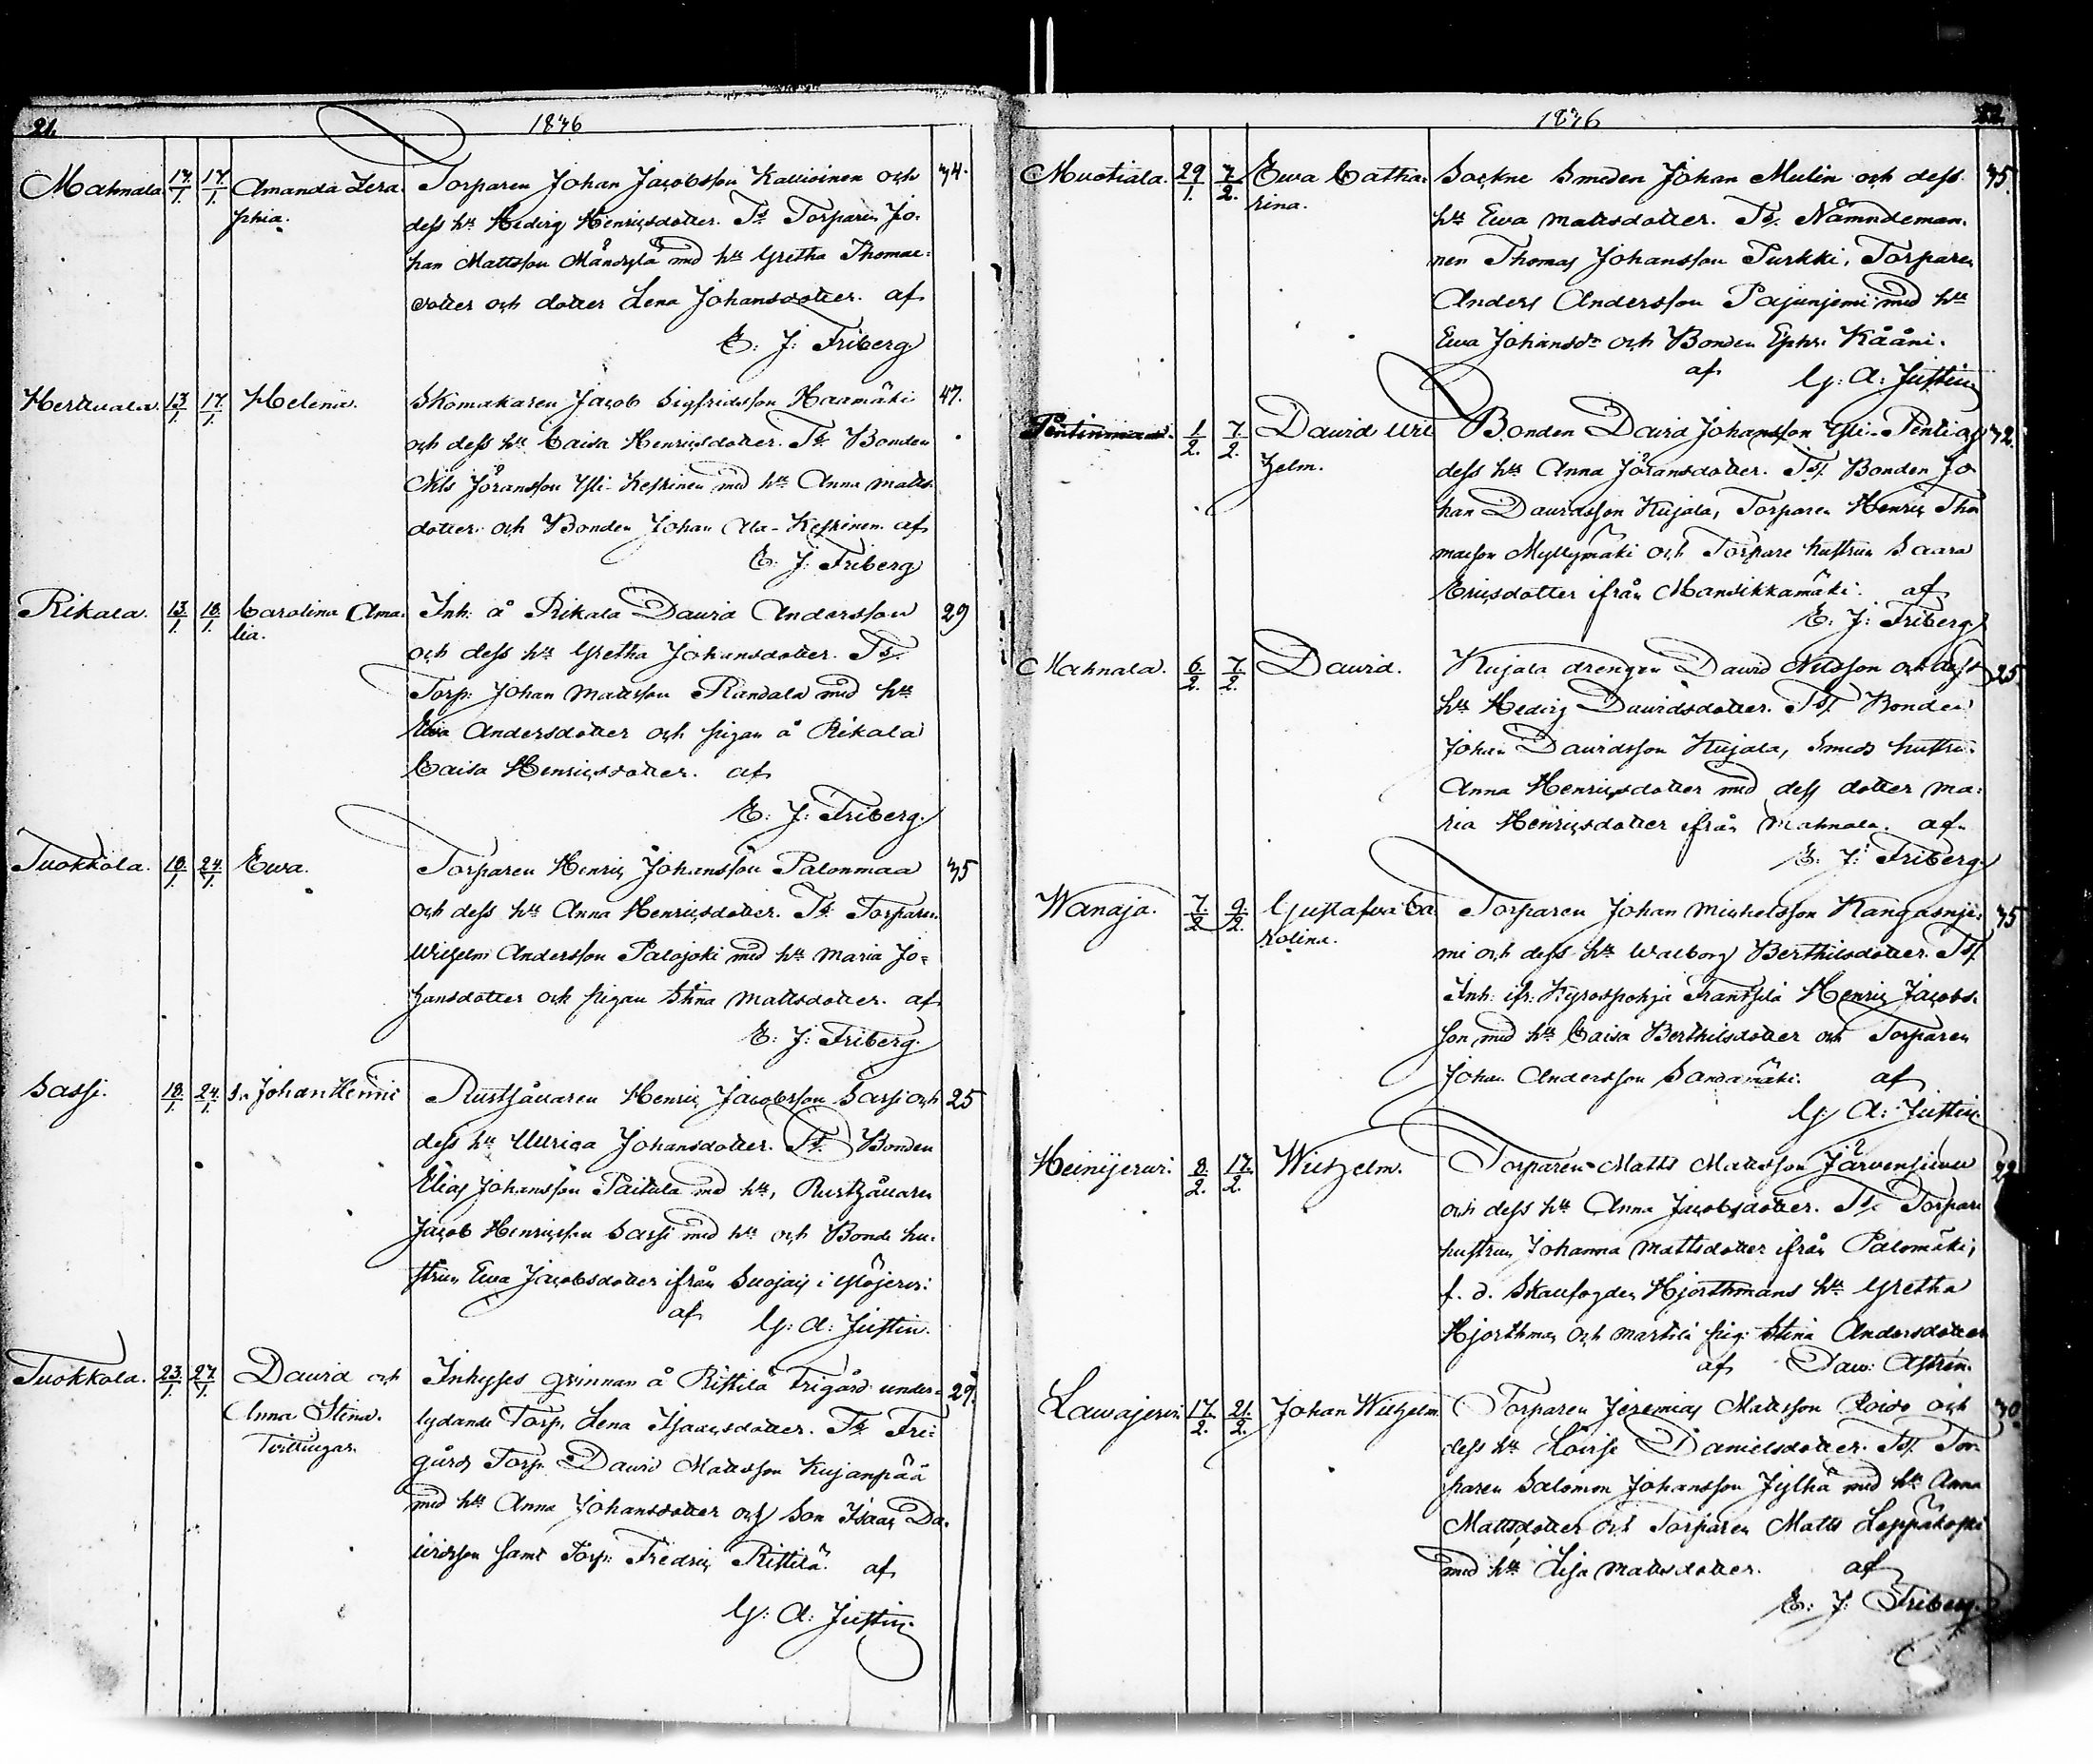 21.
1836
Mahnala 17/1. 17/1. Amanda Sera- Torparen Johan Jacobsson Kallioinen och 34.
phia. dess hu Hedvig Henricsdotter. Ts Torparen Jo-
han Mattsson Månsylä med hu Gretha Thomae-
dotter och dotter Lena Johansdotter. af
E: J: Friberg
Herttuala 13/1. 17/1. Helena. Skomakaren Jacob Sigfridsson Haamäki 47.
och dess hu Caisa Henricsdotter. Ts Bonden
Nils Jöransson Yli-Keskinen med hu Anna Matts-
dotter och Bonden Johan Ala-Keskinen af
E: J: Friberg
Rikala. 13/1. 18/1. Carolina Ama- Inh: å Rikala David Andersson 29
lia. och dess hu Gretha Johansdotter. Ts
Torp: Johan Mattsson Randala med hu
Ewa Andersdotter och pigan å Rikala
Caisa Henricsdotter. af
E: J: Friberg.
Tuokkola. 18/1. 24/1. Ewa. Torparen Henric Johansson Palonmaa 35
och dess hu Anna Henricsdotter. Ts Torparen
Wilhelm Andersson Palojoki med hu Maria Jo-
hansdotter och pigan Stina Mattsdotter. af
E: J: Friberg.
Sassi. 18/1. 24/1. Johan Henric Rusthållaren Henric Jacobsson Sassi och 25
dess hu Ulrica Johansdotter. Ts Bonden
Elias Johansson Paitula med hu, Rusthållaren
Jacob Henricsson Sassi med hu och Bonde hu-
strun Ewa Jacobsdotter ifrån Suojais i
af G: A: Justin.
Tuokkola. 23/1. 27/1. David och Inhyses qvinnan å Rittilä frigård under- 29.
Anna Stina. lydande Torp. Lena Isaacsdotter. Ts Fri-
Tvillingar. gårds Torp. David Mattsson Kujanpää
med hu Anna Johansdotter och Son Isaac Da-
vidsson samt Torp: Fredric Rittilä. af
G: A: Justin.
22.
1836
Muotiala. 29/1. 7/2. Ewa Catha- Sockne Smeden Johan Mulin och dess 35.
rina. hu Ewa Mattsdotter. Ts. Nämndeman-
nen Thomas Johansson Purkki, Torparen
Anders Andersson Pajuniemi med hu
Ewa Johansdr och Bonden Ephr. Kååni.
af G: A: Justin
1/2. 7/2. David Wil- Bonden David Johansson Yli-Penti och 32.
helm. dess hu Anna Jöransdotter. Ts. Bonden Jo-
han Davidsson Kujala, Torparen Henric Tho-
maeson Myllymäki och Torpare hustrun Saara
Ericsdotter ifrån Mansikkamäki. af
E: J: Friberg
Mahnala. 6/2. 7/2. David. Kujala drengen David Nilsson och dess 25.
hu Hedvig Davidsdotter. Ts. Bonden
Johan Davidsson Kujala, Smeds hustru-
Anna Henricsdotter med dess dotter Ma-
ria Henricsdotter ifrån Mahnala. af
E: J: Friberg.
Wanaja. 7/2. 9/2. Gustafva Ca- Torparen Johan Michelsson Kangasnie- 35
rolina. mi och dess hu Walborg Berthilsdotter. Ts.
Inh: ifr: Kyrospohja Frantsilä Henric Jacobs-
son med hu Caisa Berthilsdotter och Torparen
Johan Andersson Sandamäki. af
G: A: Justin.
Heinijerwi. 8/2. 17/2. Wilhelm. Torparen Matts Mattsson Järvensivu
och dess hu Anna Jacobsdotter. Ts. Torpare
hustrun Johanna Mattsdotter ifrån Palomäki,
f. d. Skaufogden Hjorthmans hu Gretha
Hjorthman och Martila pig: Stina Andersdotter
af Dav: Astrén.
Lawajerwi 17/2. 21/2. Johan Wilhelm. Torparen Jeremias Mattsson Roivo och 30.
dess hu Lovisa Danielsdotter. Ts. Tor-
paren Salomon Johansson Jylhä med hu Anna
Mattsdotter och Torparen Matts Leppäkoski
med hu Lisa Mattsdotter. af
E: J: Friberg.